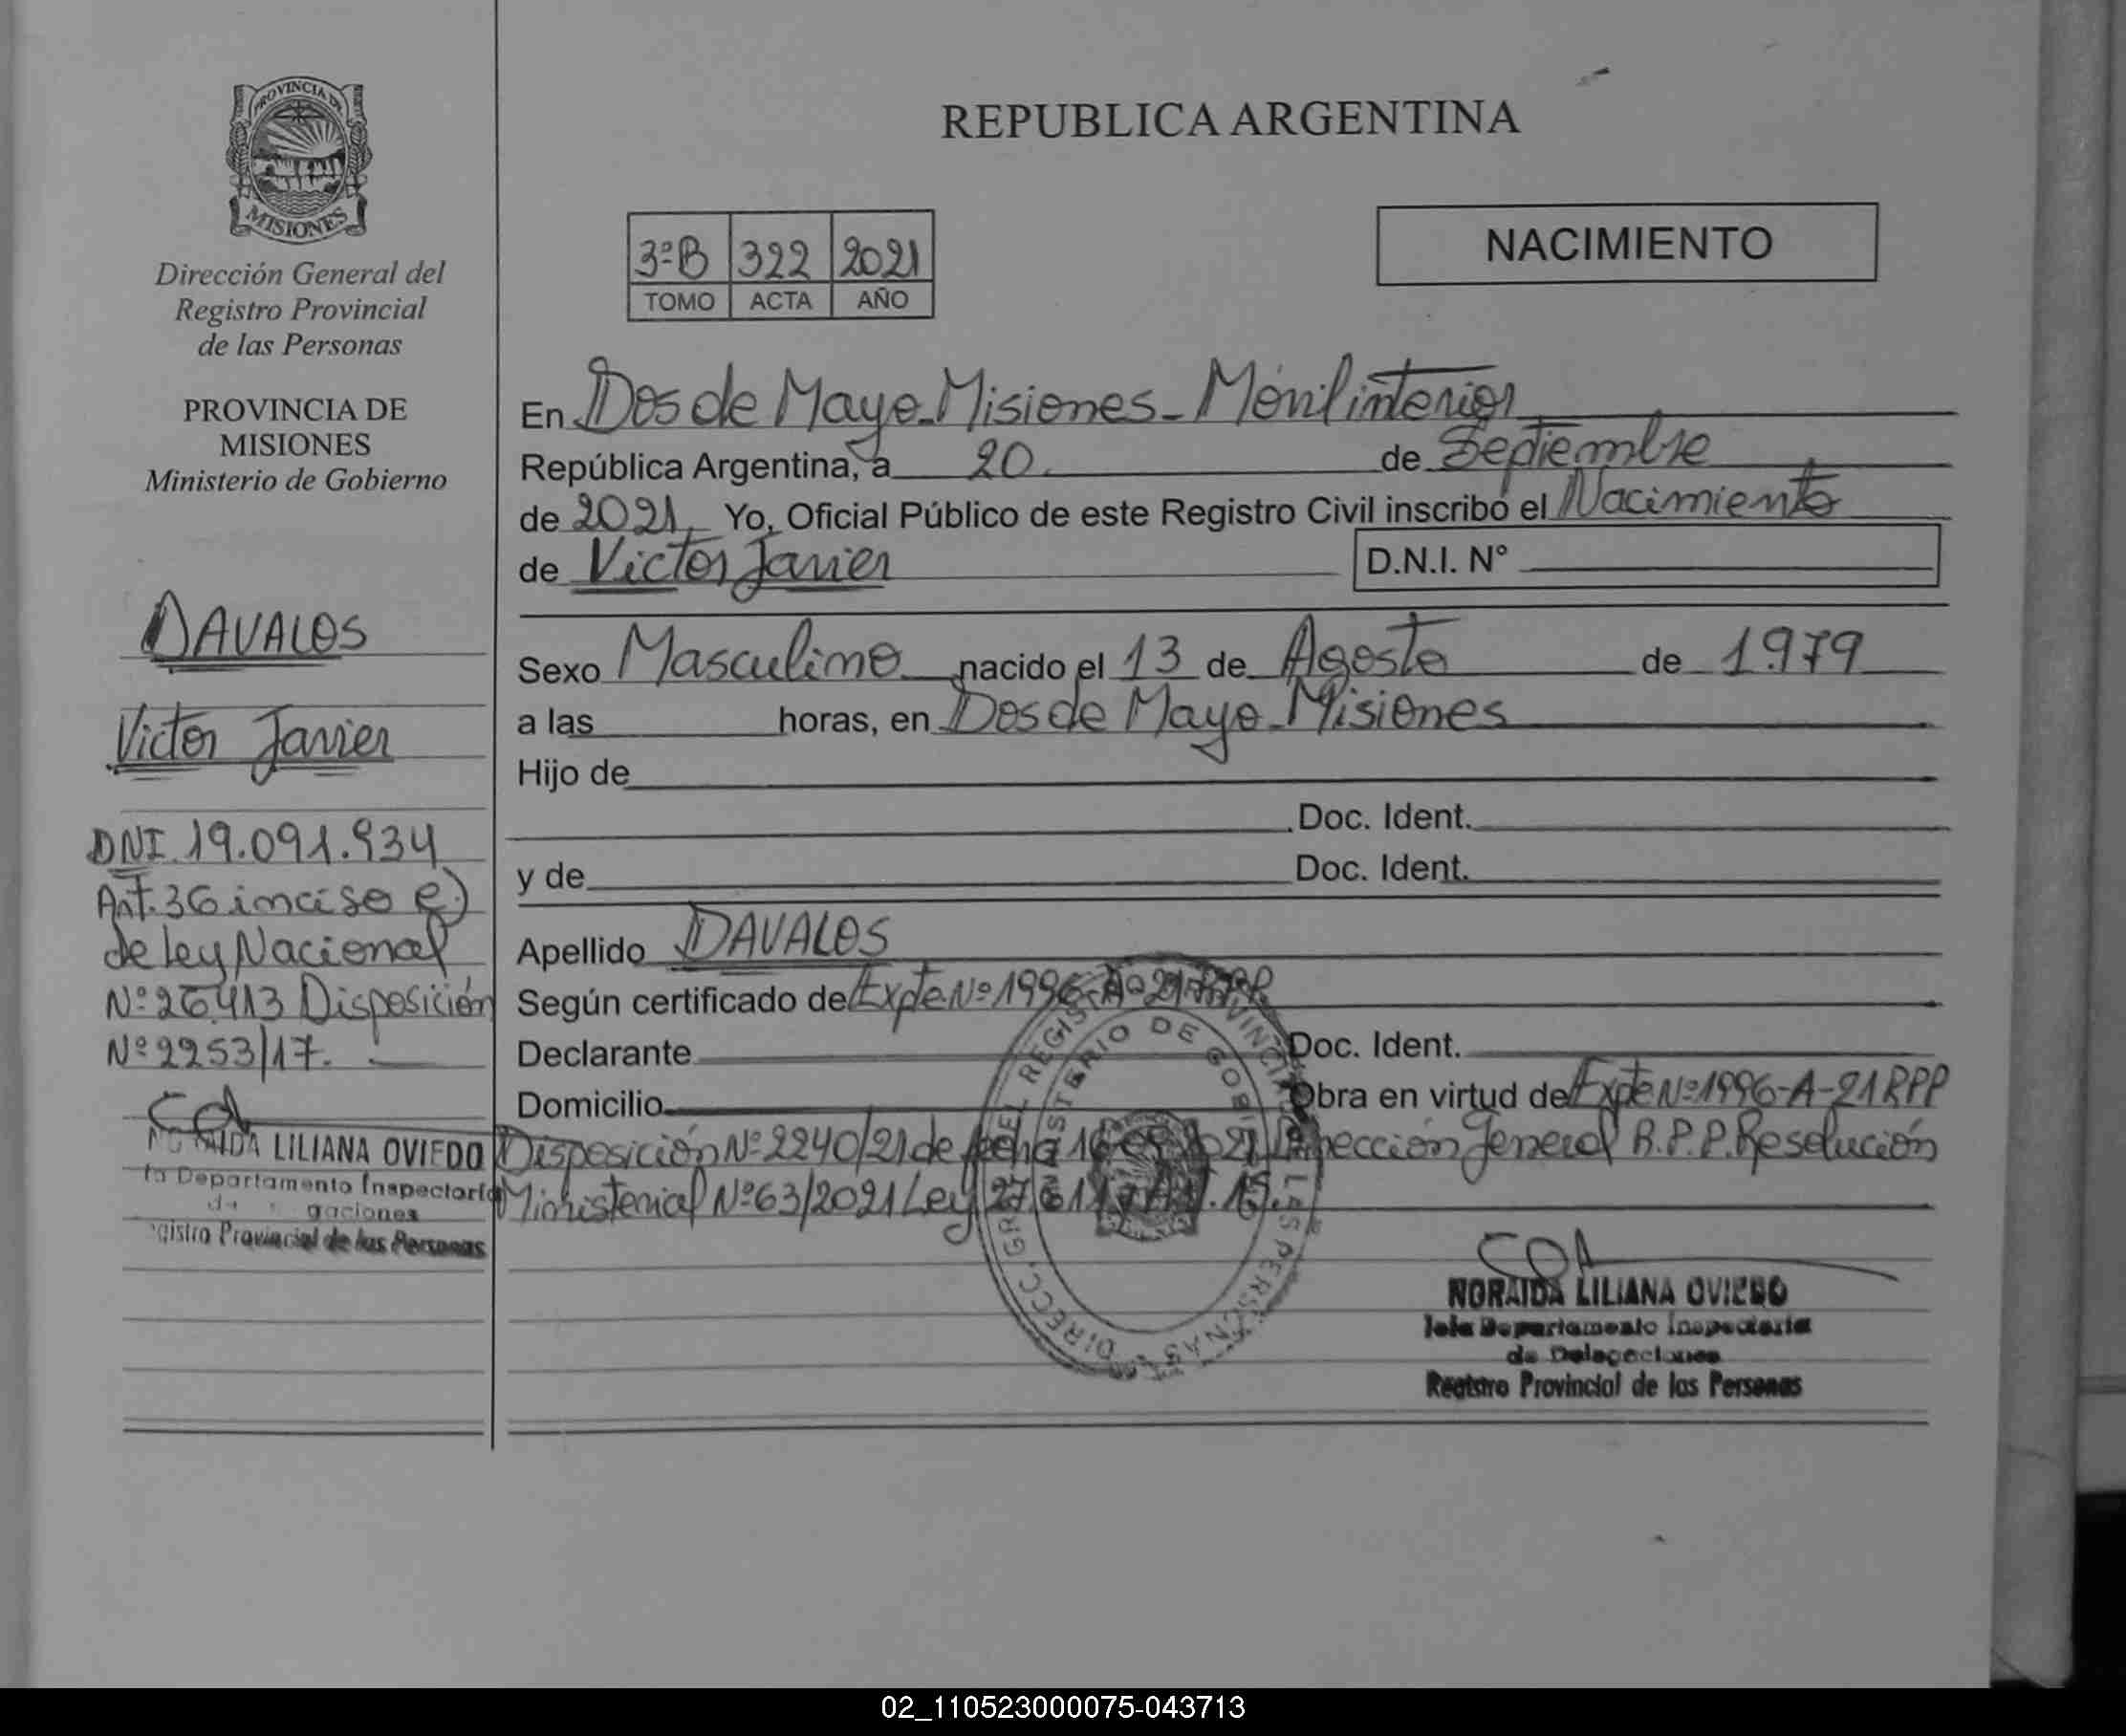 PROVINCIA DE
MISIONES
Dirección General del
Registro Provincial
de las Personas
PROVINCIA DE
MISIONES
Ministerio de Gobierno
DAVALOS
Victor Javier
DNI 19.091.934
Art. 36 inciso e)
de Ley Nacional
Nº 26413 Disposición
Nº 2253/17.
LILIANA OVIEDO
Departamento Inspectoría
Registro Provincial de las Personas
REPUBLICA ARGENTINA
3ºB 322 2021
TOMO ACTA AÑO
NACIMIENTO
En Dos de Mayo-Misiones-Móvil interior
República Argentina, a 20. de Septiembre
de 2021, Yo, Oficial Público de este Registro Civil inscribo el Nacimiento
de Victor Javier D.N.I. N°
Sexo Masculino nacido el 13 de Agosto de 1979
a las horas, en Dos de Mayo-Misiones
Hijo de
Doc. Ident.
y de Doc. Ident.
Apellido DAVALOS
Según certificado de Expte Nº 1996-A-21-RPP
Declarante Doc. Ident.
Domicilio Obra en virtud de Expte Nº 1996-A-21 RPP
Disposición Nº 2240/21 de fecha Dirección General R.P.P. Resolución
Ministerial Nº 63/2021 Ley
DIRECC. GRAL. DEL REGISTRO PROVINCIAL DE LAS PERSONAS
MINISTERIO DE GOBIERNO
NORAIDA LILIANA OVIEDO
Jefe Departamento Inspectoría
de Delegaciones
Registro Provincial de las Personas
02_110523000075-043713